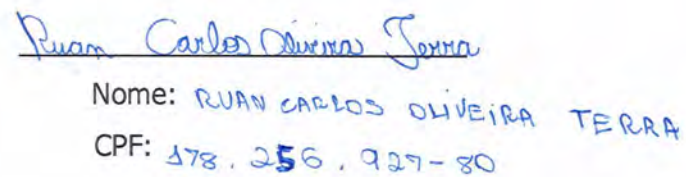 Ruan Carlos Oliveira Terra
Nome: RUAN CARLOS OLIVEIRA TERRA
CPF: 178.256.927-80